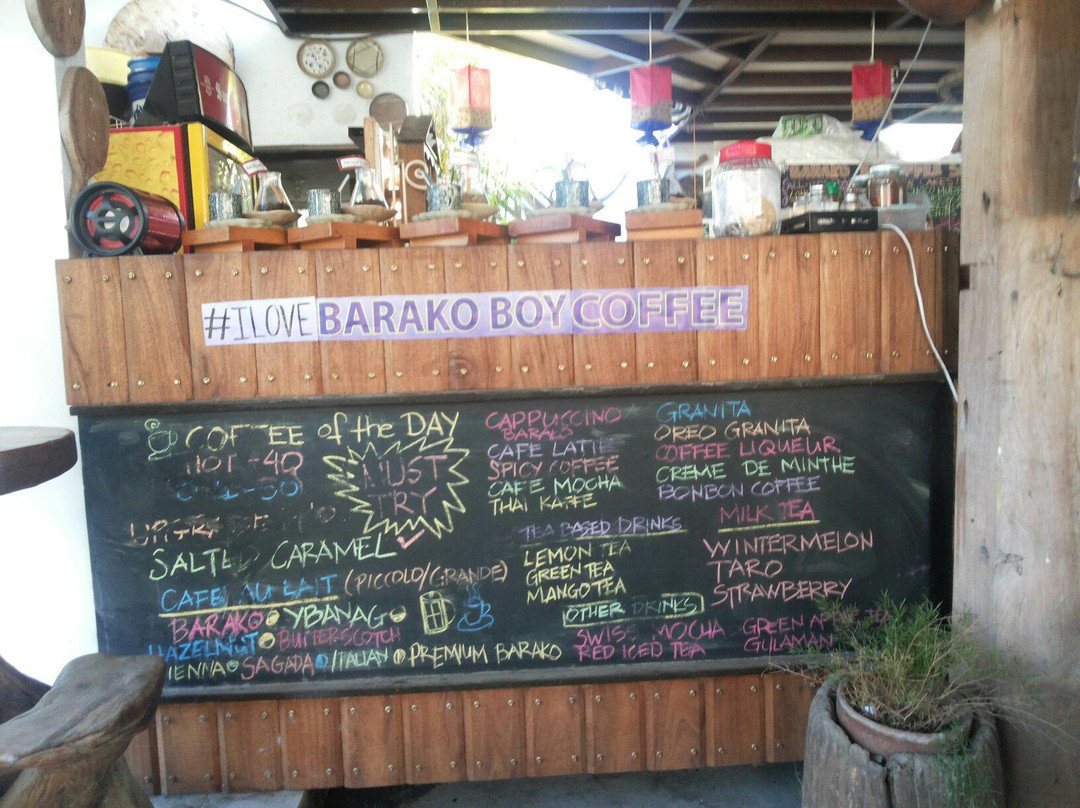 #ILOVE BARAKO BOY COFFEE
COFFEE of the DAY
HOT - 40
MUST TRY
SALTED CARAMEL
CAFE AU LAIT (PICCOLO/GRANDE)
BARAKO YBANAG
HAZELNUT BUTTERSCOTCH
VIENNA SAGADA ITALIAN PREMIUM BARAKO
CAPPUCCINO
BARAKO
CAFE LATTE
SPICY COFFEE
CAFE MOCHA
THAI KAFFE
TEA BASED DRINKS
LEMON TEA
GREEN TEA
MANGO TEA
OTHER DRINKS
SWISS MOCHA
RED ICED TEA
GRANITA
OREO GRANITA
COFFEE LIQUEUR
CREME DE MINTHE
BONBON COFFEE
MILK TEA
WINTERMELON
TARO
STRAWBERRY
GREEN APPLE
GULAMAN